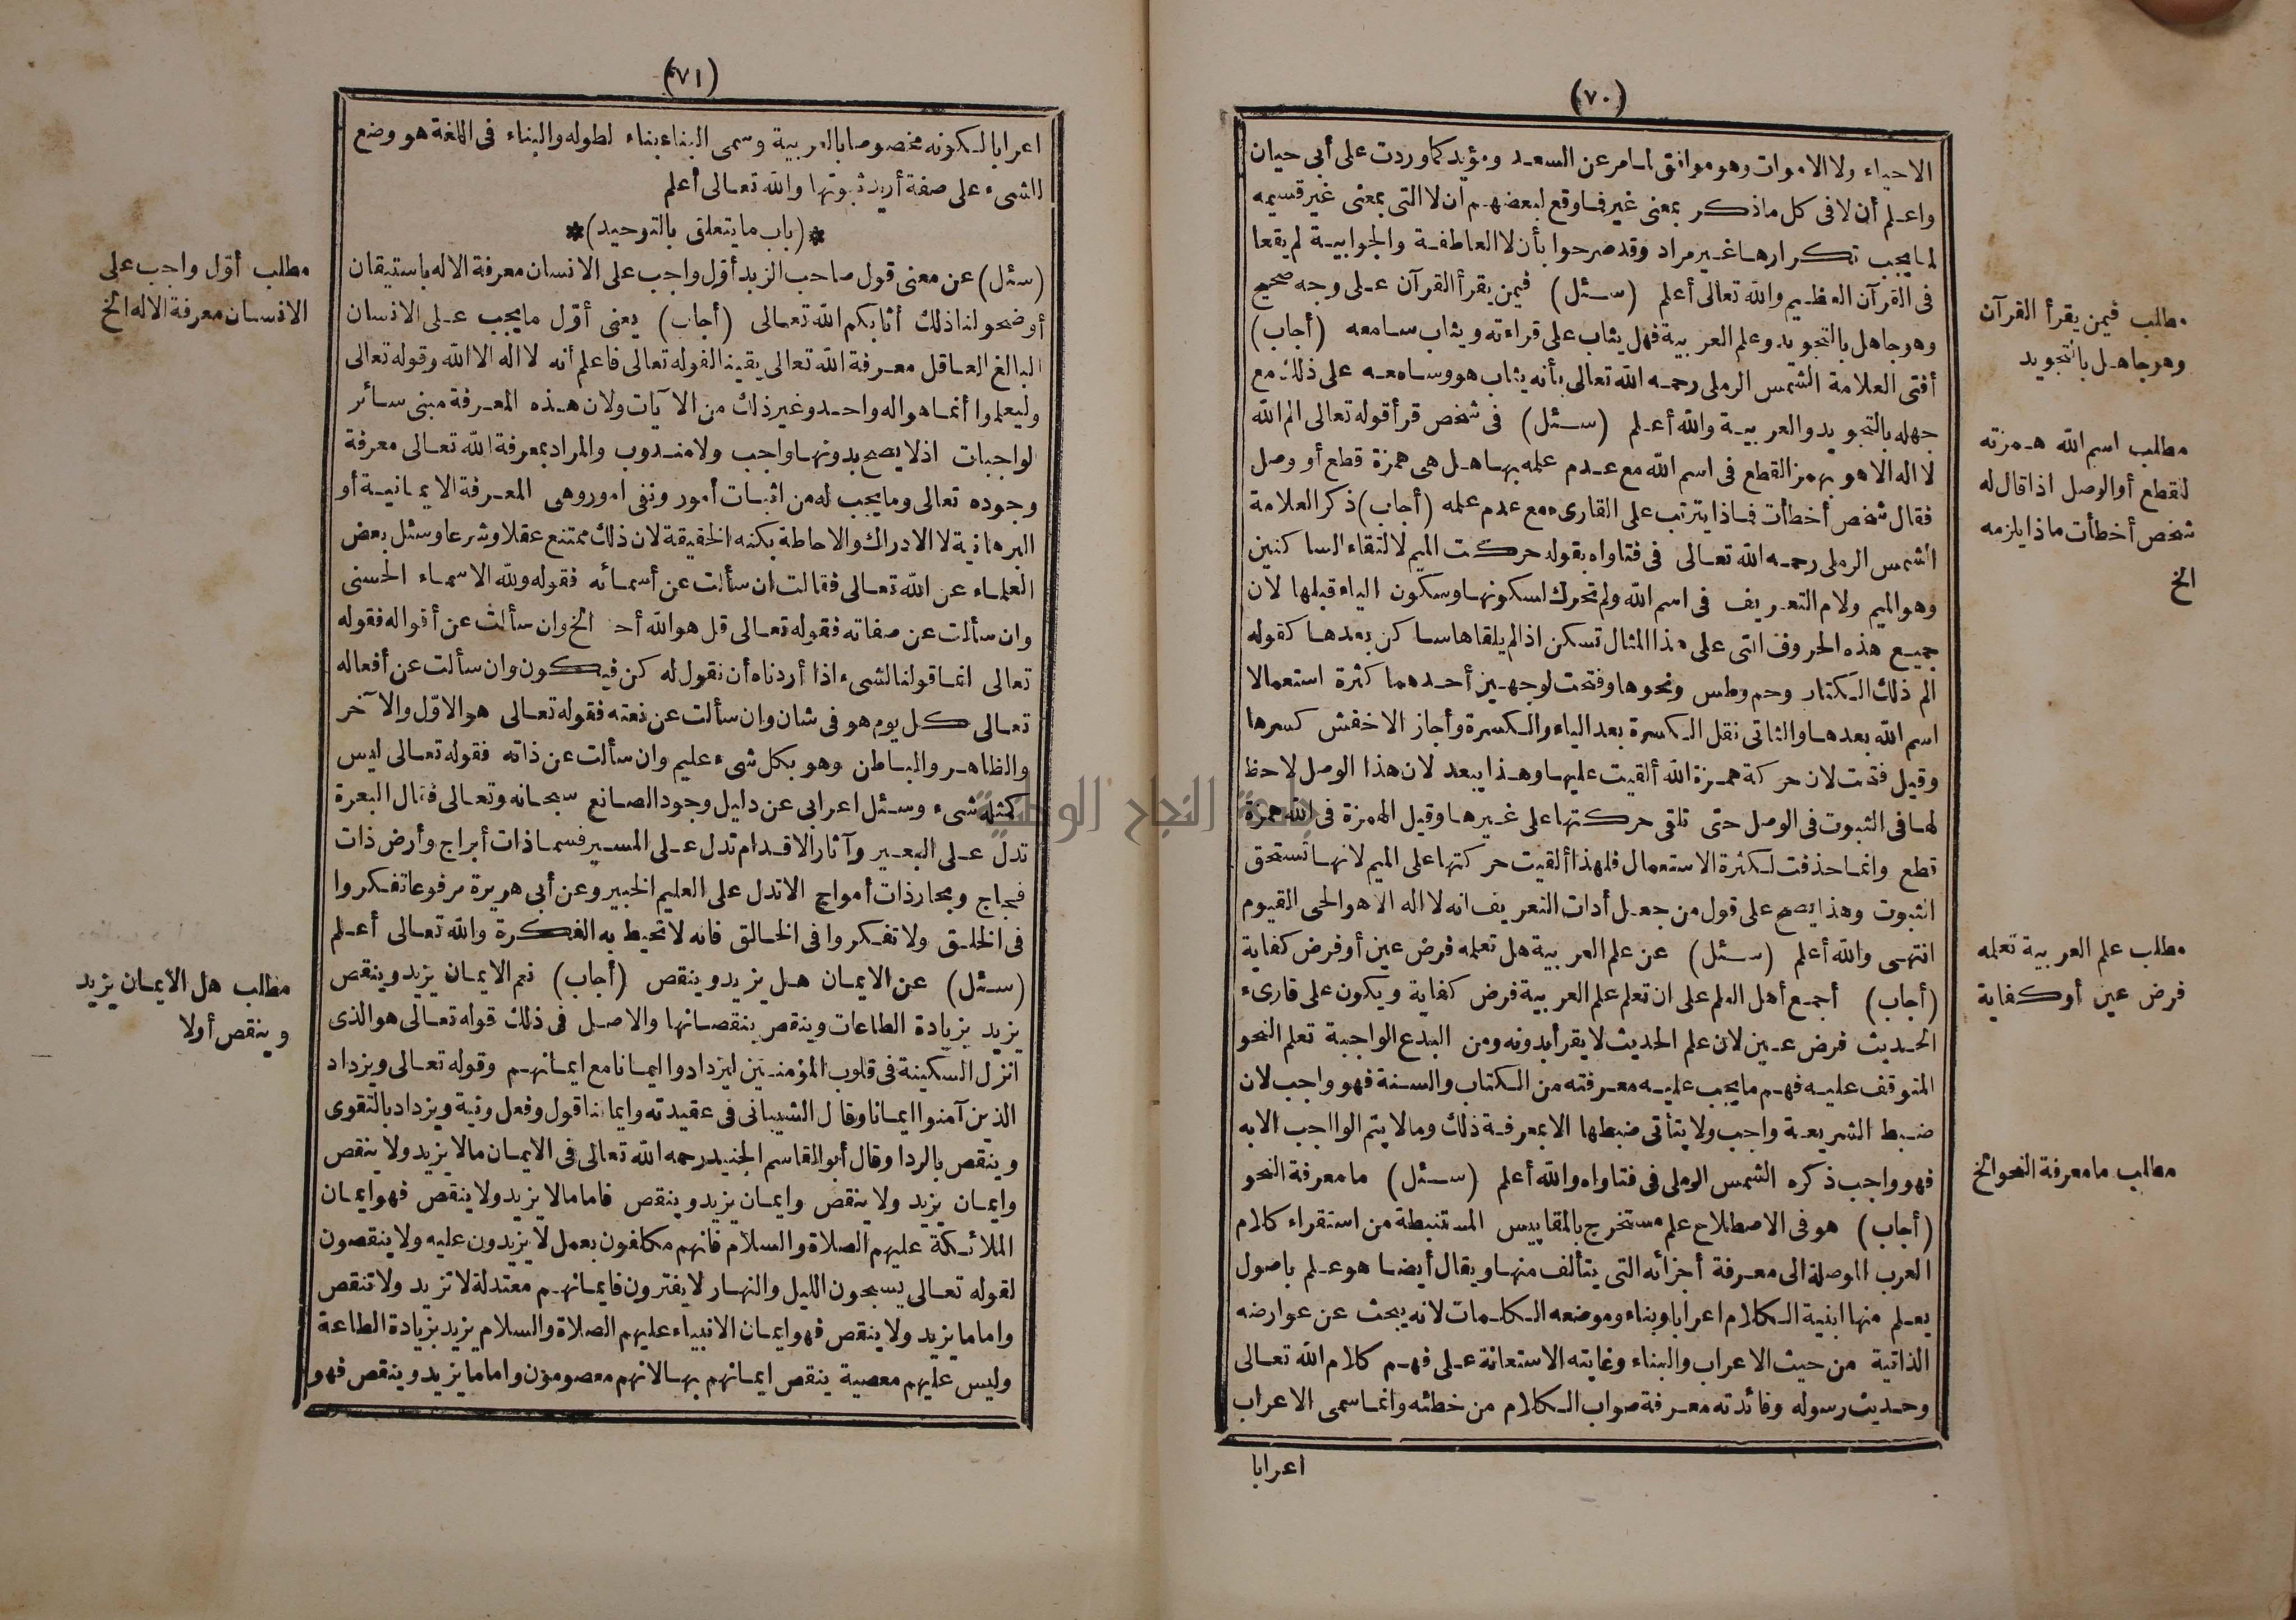 (٧٠)
الاحياء ولا الاموات وهو موافق لما مر عن السعد ويؤيد كما وردت على أبى حيان
واعلم أن لا فى كل ما ذكر بمعنى غير فما وقع لبعضهم ان لا التى بمعنى غير قسيمه
لما يجب تكرارها غير مراد وقد صرحوا بأن لا العاطفة والجوابية لم يقعا
فى القرآن العظيم والله تعالى أعلم (سئل) فيمن يقرأ القرآن على وجه صحيح
وهو جاهل بالتجويد وعلم العربية فهل يثاب على قراءته ويثاب سامعه (أجاب)
أفتى العلامة الشمس الرملى رحمه الله تعالى بأنه يثاب هو وسامعه على ذلك مع
جهله بالتجويد والعربية والله أعلم (سئل) فى شخص قرأ قوله تعالى الم الله
لا اله الا هو بهمز القطع فى اسم الله مع عدم علمه بها هل هى همزة قطع أو وصل
فقال شخص أخطأت فماذا يترتب على القارى مع عدم علمه (أجاب) ذكر العلامة
الشمس الرملى رحمه الله تعالى فى فتاواه بقوله حركت الميم لالتقاء الساكنين
وهو الميم ولام التعريف فى اسم الله ولم تحرك لسكونها وسكون الياء قبلها لان
جميع هذه الحروف التى على هذا المثال تسكن اذا لم يلقاها ساكن بعدها كقوله
الم ذلك الكتاب وحم وطس ونحوها وفتحت لوجهين أحدهما كثرة استعمال
اسم الله بعدها والثانى نقل الكسرة بعد الياء والكسرة وأجاز الاخفش كسرها
وقيل فتحت لان حركة همزة الله ألقيت عليها وهذا يبعد لان هذا الوصل لا حظ
لها فى الثبوت فى الوصل حتى تلقى حركتها على غيرها وقيل الهمزة فى الله همزة
قطع وانما حذفت لكثرة الاستعمال فلهذا ألقيت حركتها على الميم لانها تستحق
الثبوت وهذا يصح على قول من جعل أدات التعريف انه لا اله الا هو الحى القيوم
انتهى والله أعلم (سئل) عن علم العربية هل تعلمه فرض عين أو فرض كفاية
(أجاب) أجمع أهل العلم على ان تعلم علم العربية فرض كفاية ويكون على قارىء
الحديث فرض عين لان علم الحديث لا يقرأ بدونه ومن البدع الواجبة تعلم النحو
المتوقف عليه فهم ما يجب عليه معرفته من الكتاب والسنة فهو واجب لان
ضبط الشريعة واجب ولا يتأتى ضبطها الا بمعرفة ذلك وما لا يتم الواجب الا به
فهو واجب ذكره الشمس الرملى فى فتاواه والله أعلم (سئل) ما معرفة النحو
(أجاب) هو فى الاصطلاح علم مستخرج بالمقاييس المستنبطة من استقراء كلام
العرب الموصلة الى معرفة أجزائه التى يتألف منها ويقال أيضا هو علم باصول
يعلم منها ابنية الكلام اعرابا وبناء وموضعه الكلمات لانه يبحث عن عوارضه
الذاتية من حيث الاعراب والبناء وغايته الاستعانة على فهم كلام الله تعالى
وحديث رسوله وفائدته معرفة صواب الكلام من خطئه وانما سمى الاعراب
اعرابا
مطلب فيمن يقرأ القرآن
وهو جاهل بالتجويد
مطلب اسم الله همزته
للقطع أو الوصل اذا قال له
شخص أخطأت ماذا يلزمه
الخ
مطلب علم العربية تعلمه
فرض عين أو كفاية
مطلب ما معرفة النحو الخ
(٧١)
اعرابا لكونه مخصوصا بالعربية وسمى البناء بناء لطوله والبناء فى اللغة هو وضع
الشىء على صفة أريد ثبوتها والله تعالى أعلم
*(باب ما يتعلق بالتوحيد)*
(سئل) عن معنى قول صاحب الزبد أول واجب على الانسان معرفة الاله باستيقان
أوضحوا لنا ذلك أثابكم الله تعالى (أجاب) يعنى أوّل ما يجب على الانسان
البالغ العاقل معرفة الله تعالى يقينا لقوله تعالى فاعلم أنه لا اله الا الله وقوله تعالى
وليعلموا أنما هو اله واحد وغير ذلك من الآيات ولان هذه المعرفة مبنى سائر
الواجبات اذ لا يصح بدونها واجب ولا مندوب والمراد بمعرفة الله تعالى معرفة
وجوده تعالى وما يجب له من اثبات أمور ونفى امور وهى المعرفة الايمانية أو
البرهانية لا الادراك والاحاطة بكنه الحقيقة لان ذلك ممتنع عقلا وشرعا وسئل بعض
العلماء عن الله تعالى فقالت ان سألت عن أسمائه فقوله ولله الاسماء الحسنى
وان سألت عن صفاته فقوله تعالى قل هو الله أحد الخ وان سألت عن أقواله فقوله
تعالى انما قولنا لشىء اذا أردناه أن نقول له كن فيكون وان سألت عن أفعاله
تعالى كل يوم هو فى شان وان سألت عن نعته فقوله تعالى هو الاوّل والآخر
والظاهر والباطن وهو بكل شىء عليم وان سألت عن ذاته فقوله تعالى ليس
كمثله شىء وسئل اعرابى عن دليل وجود الصانع سبحانه وتعالى فقال البعرة
تدل على البعير وآثار الاقدام تدل على المسير فسما ذات أبراج وأرض ذات
فجاج وبحار ذات أمواج الا تدل على العليم الخبير وعن أبى هريرة مرفوعا تفكروا
فى الخلق ولا تفكروا فى الخالق فانه لا تحيط به الفكرة والله تعالى أعلم
(سئل) عن الايمان هل يزيد وينقص (أجاب) نعم الايمان يزيد وينقص
يزيد بزيادة الطاعات وينقص بنقصانها والاصل فى ذلك قوله تعالى هو الذى
انزل السكينة فى قلوب المؤمنين ليزدادوا ايمانا مع ايمانهم وقوله تعالى ويزداد
الذين آمنوا ايمانا وقال الشيبانى فى عقيدته وايماننا قول وفعل ونية ويزداد بالتقوى
وينقص بالردا وقال أبو القاسم الجنيد رحمه الله تعالى فى الايمان ما لا يزيد ولا ينقص
وايمان يزيد ولا ينقص وايمان يزيد وينقص فاما ما لا يزيد ولا ينقص فهو ايمان
الملائكة عليهم الصلاة والسلام فانهم مكلفون بعمل لا يزيدون عليه ولا ينقصون
لقوله تعالى يسبحون الليل والنهار لا يفترون فايمانهم معتدلة لا تزيد ولا تنقص
واما ما يزيد ولا ينقص فهو ايمان الانبياء عليهم الصلاة والسلام يزيد بزيادة الطاعة
وليس عليهم معصية ينقص ايمانهم بها لانهم معصومون واما ما يزيد وينقص فهو
مطلب أوّل واجب على
الانسان معرفة الاله الخ
مطلب هل الايمان يزيد
وينقص أولا
جامعة النجاح الوطنية